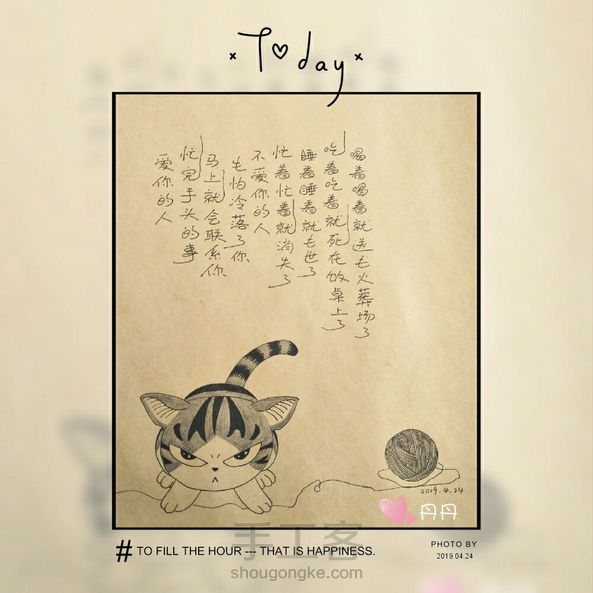 Today
爱你的人
忙完手头的事
马上就会联系你
生怕冷落了你
不爱你的人
忙着忙着就消失了
睡着睡着就去世了
吃着吃着就死在饭桌上了
喝着喝着就送去火葬场了
2019.4.24
丹丹
手工客
# TO FILL THE HOUR --- THAT IS HAPPINESS.
PHOTO BY
2019.04.24
shougongke.com